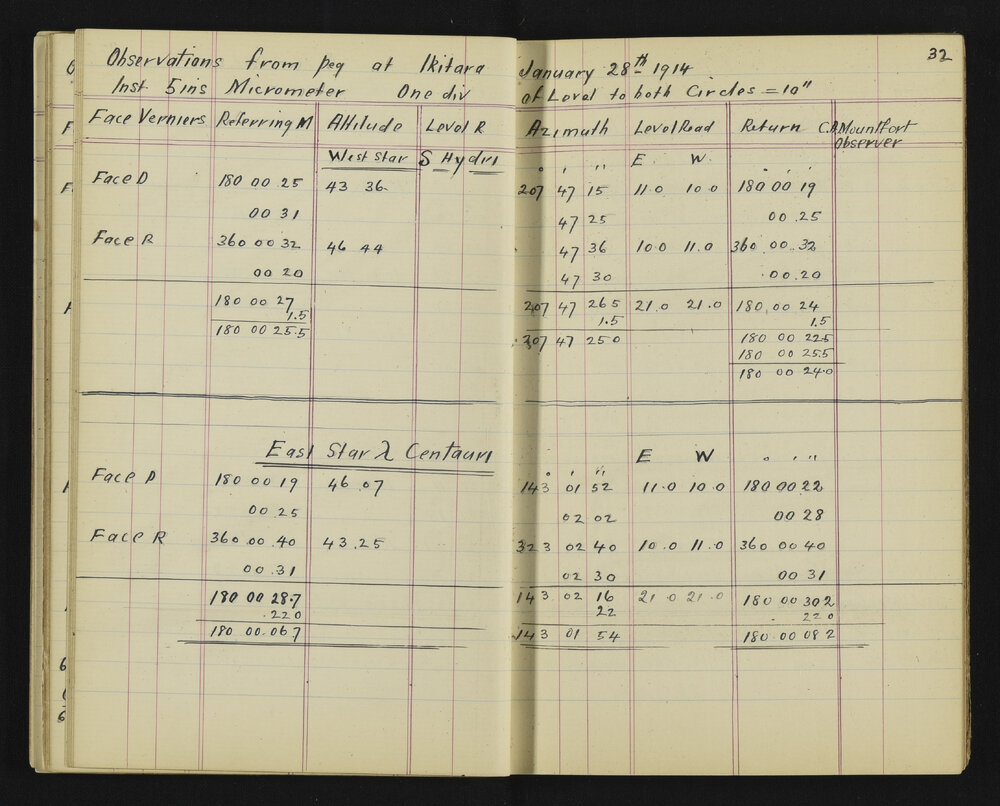 Observations from peg at Ikitara January 28th 1914 32
Inst. 5 ins Micrometer One div of Level to both Circles = 10"
Face Verniers Referring M Altitude Level R Azimuth Level Read Return C.A. Mountfort
Observer
West Star S Hydri ° ' '' E. W. ° ' ''
Face D 180 00 25 43 36. 207 47 15 11.0 10.0 180 00 19
00 31 47 25 00.25
Face R 360 00 32 46 44 47 36 10.0 11.0 360 00.32
00 20 47 30 00.20
180 00 27 207 47 26 5 21.0 21.0 180,00 24
1.5 1.5 1.5
180 00 25.5 207 47 25 0 180 00 22.5
180 00 25.5
180 00 24.0
East Star λ Centauri E W ° ' ''
Face D 180 00 19 46.07 143 01 52 11.0 10.0 180 00 22
00.25 02 02 00 28
Face R 360.00.40 43.25 323 02 40 10.0 11.0 360 00 40
00.31 02 30 00 31
180 00 28.7 143 02 16 21.0 21.0 180 00 30 2
.22 0 22 22 0
180 00.06 7 143 01 54 180.00 08 2